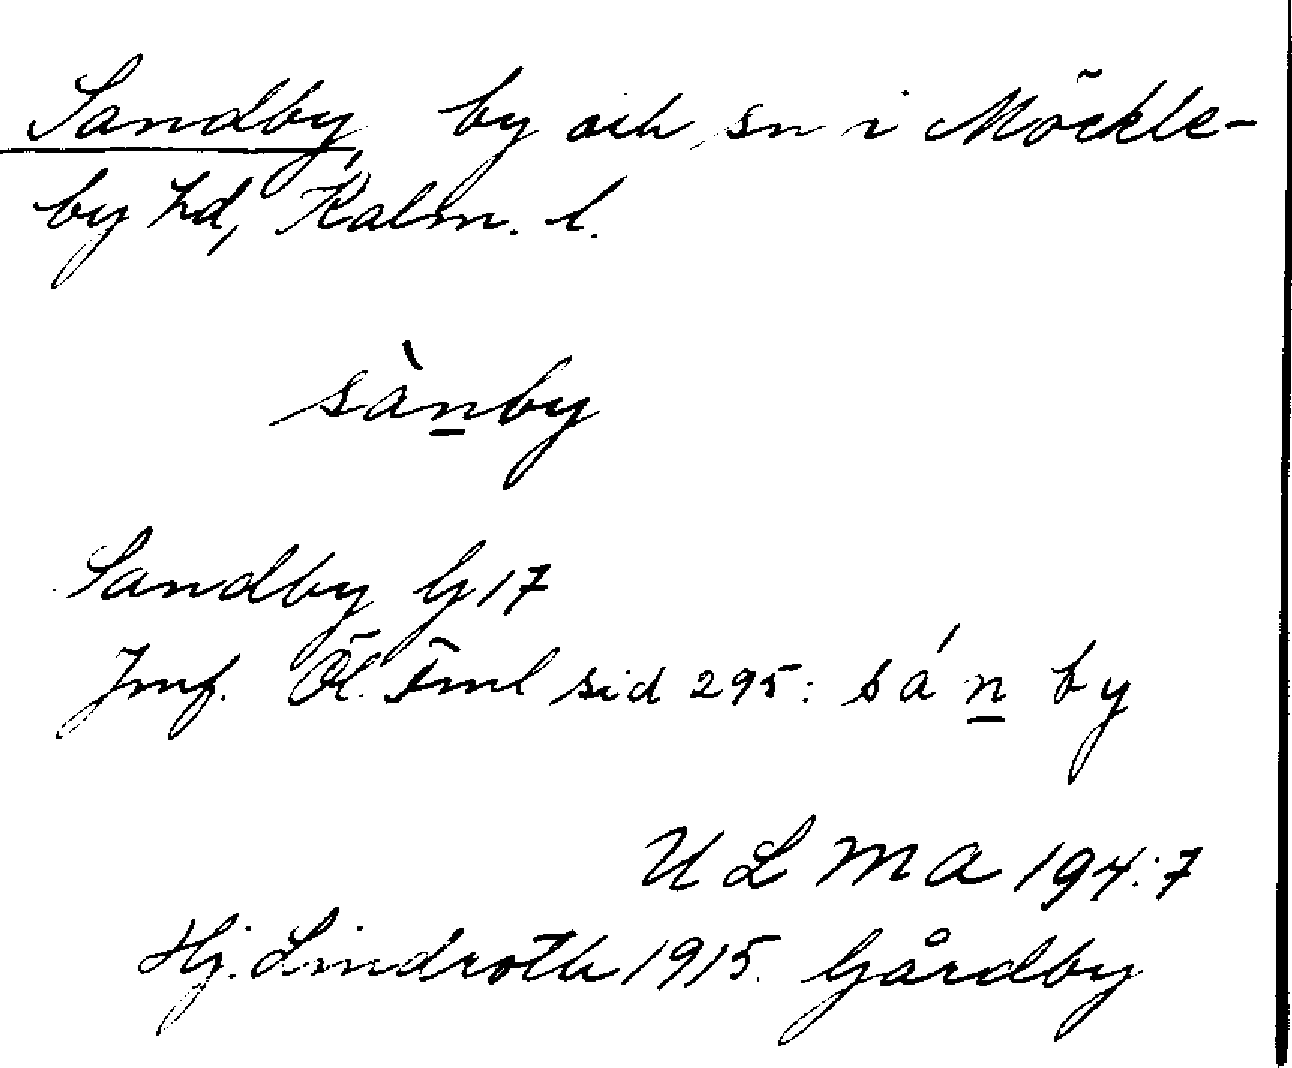 Sandby, by och sn i Möckle-
by hd, Kalm. l.
sànby
Sandby G 17
Jmf. Öl. Fml sid 295: sánby
ULMA 194:7
Hj. Lindroth 1915. Gårdby